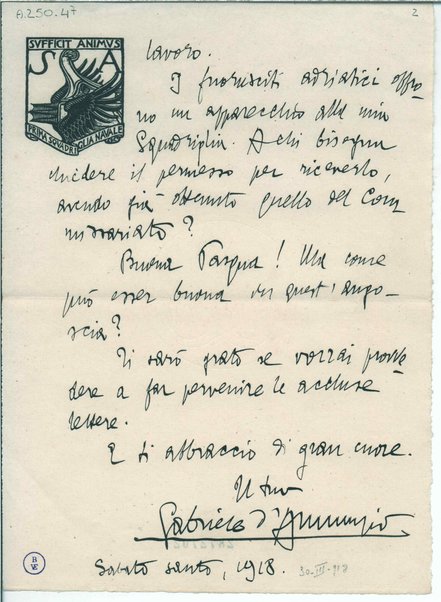 A.250.47
2
SVFFICIT ANIMVS
S A
PRIMA SQVADRIGLIA NAVALE
lavoro.
I fuorusciti adriatici offro-
no un apparecchio alla mia
Squadriglia. A chi bisogna
chiedere il permesso per riceverlo,
avendo già ottenuto quello del Com
missariato?
Buona Pasqua! Ma come
può esser buona in quest'ango-
scia?
Ti sarò grato se vorrai provve-
dere a far pervenire le accluse
lettere.
E ti abbraccio di gran cuore.
Il tuo
Gabriele d'Annunzio
Sabato santo, 1918. 30-III-918